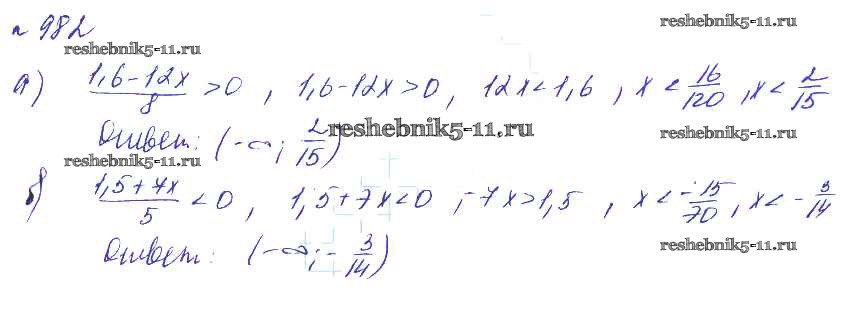 № 982
reshebnik5-11.ru reshebnik5-11.ru
а) (1,6-12x)/8 > 0, 1,6-12x>0, 12x<1,6, x < 16/120, x < 2/15
Ответ: (-∞; 2/15) reshebnik5-11.ru reshebnik5-11.ru
reshebnik5-11.ru
б) (1,5+7x)/5 < 0, 1,5+7x<0, -7x>1,5, x < -15/70, x < -3/14
Ответ: (-∞; -3/14) reshebnik5-11.ru